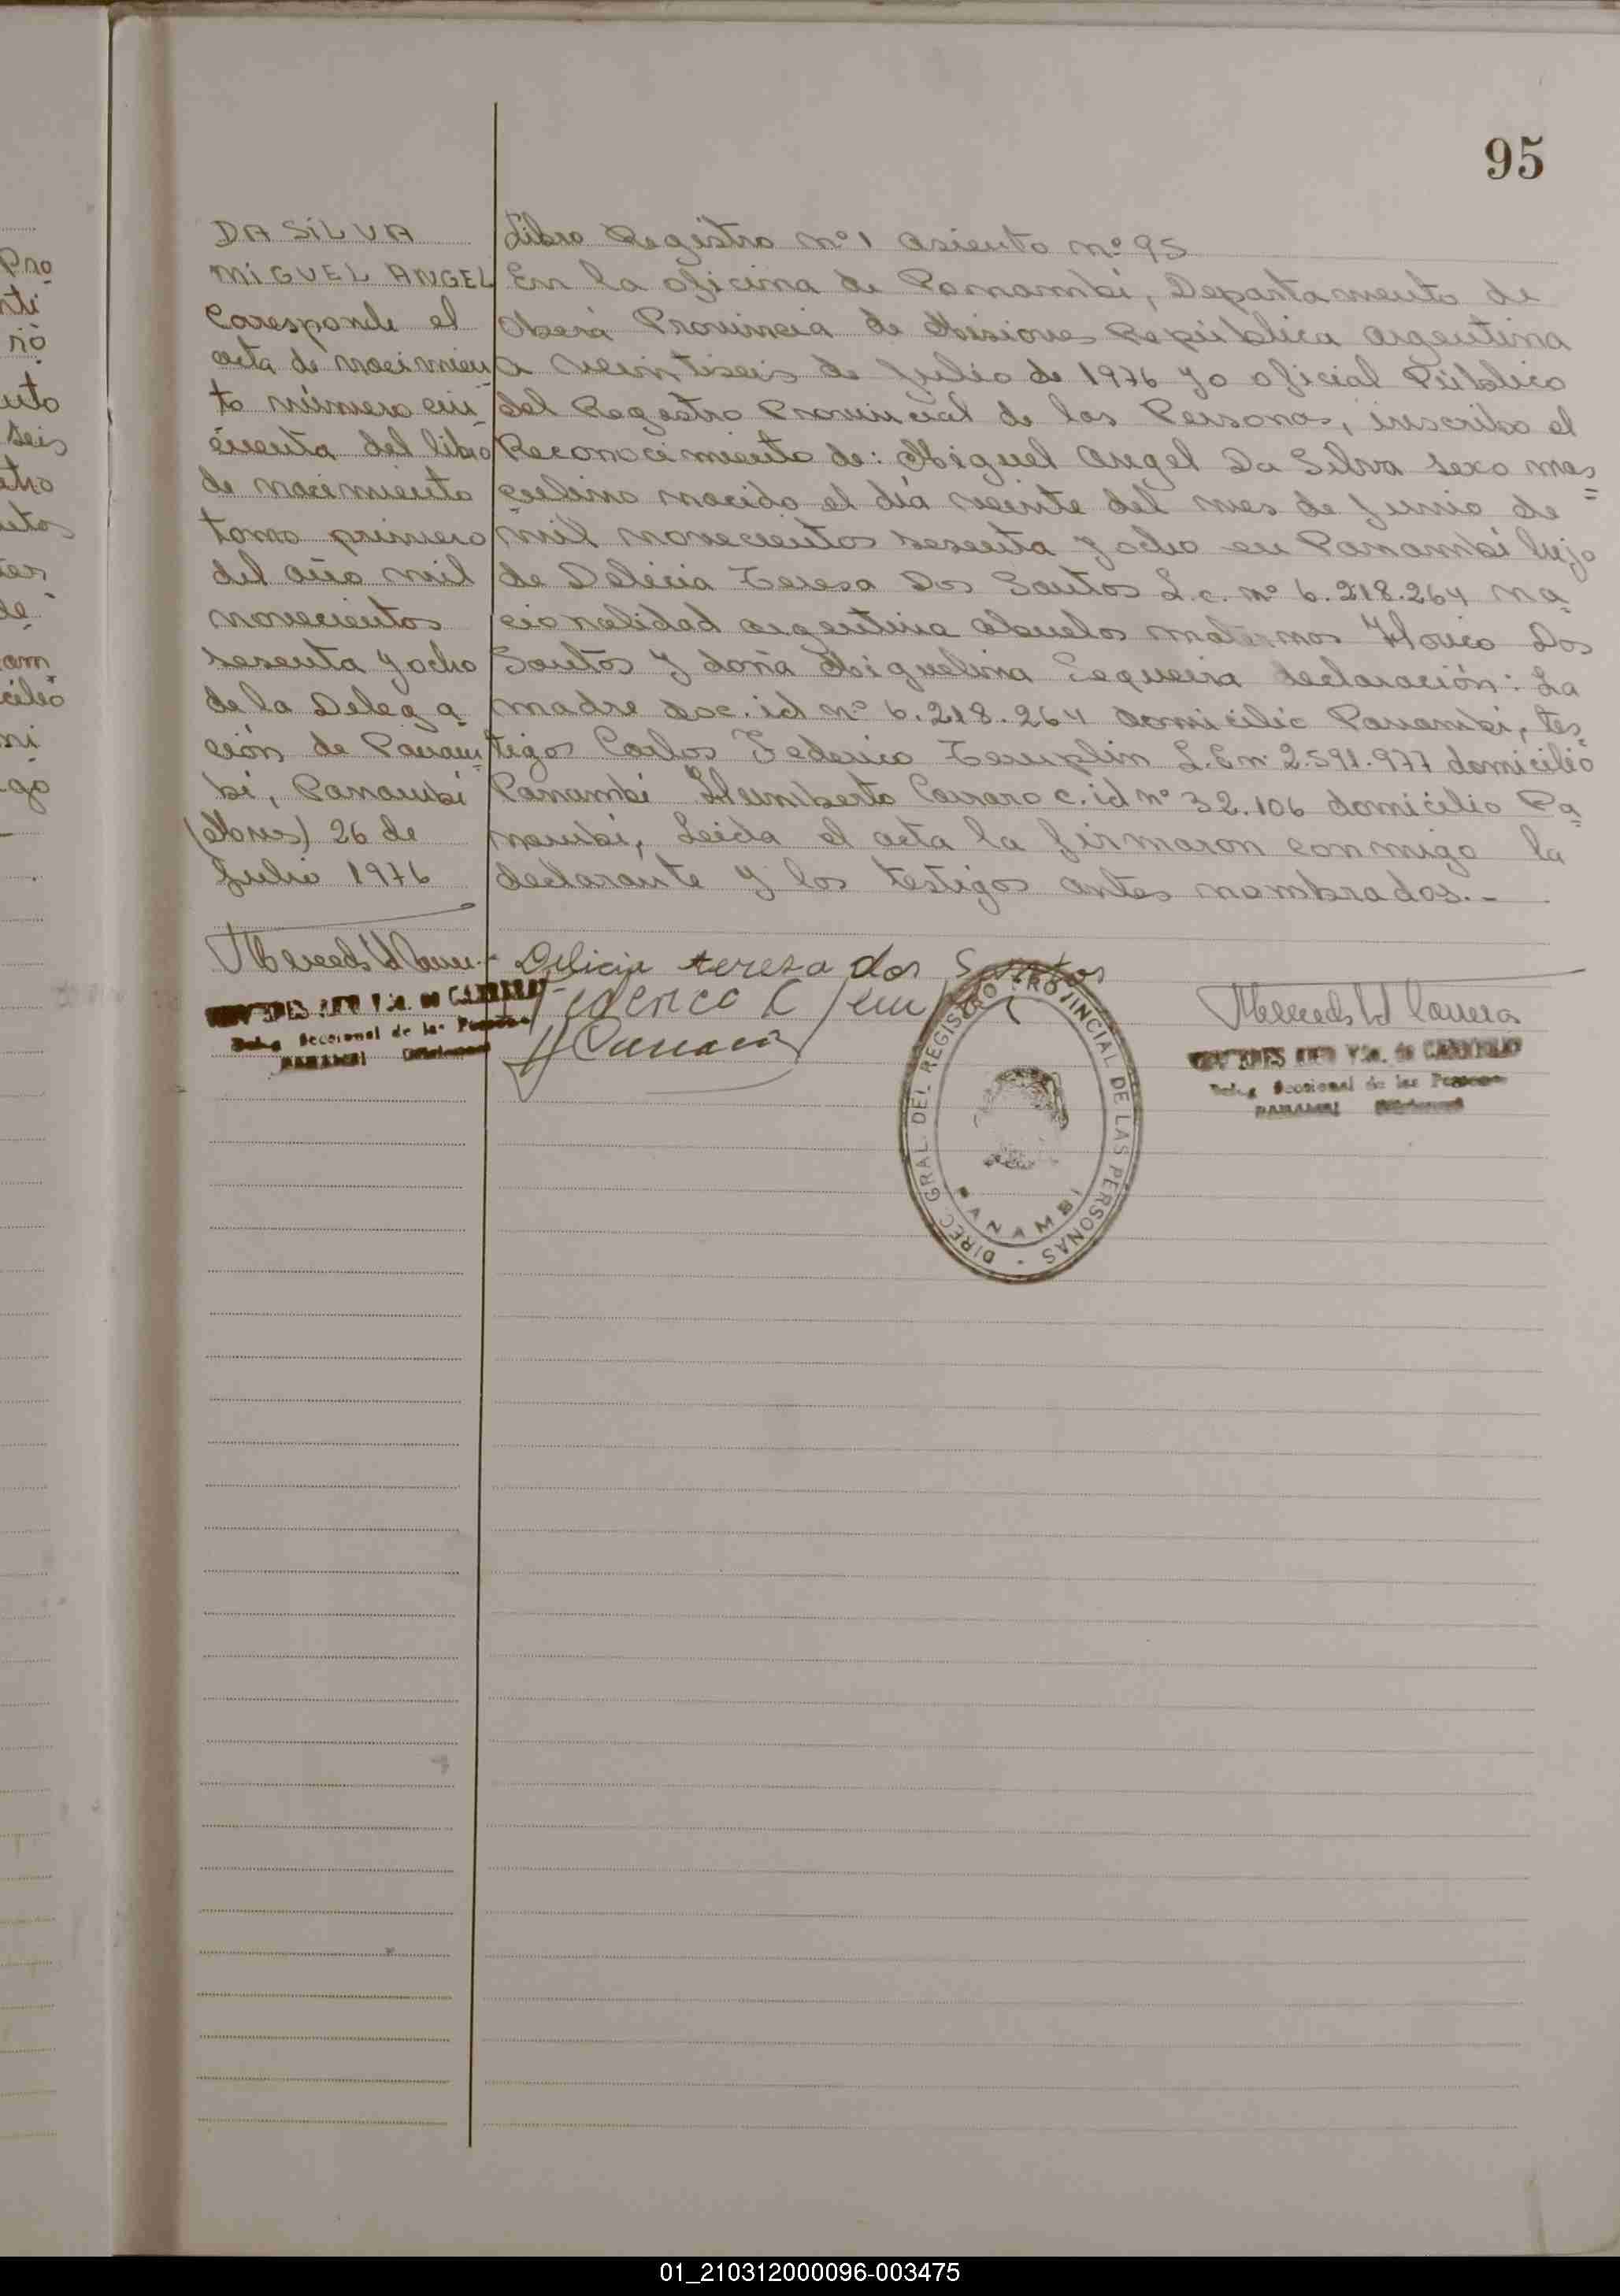 95
DA SILVA
MIGUEL ANGEL
Coresponde el
acta de nacimien
to número cin
cuenta del libro
de nacimiento
tomo primero
del año mil
novecientos
sesenta y ocho
de la Delega
ción de Panam
bí, Panambí
(Mnes) 26 de
Julio 1976
Libro Registro nº 1 asiento nº 95
En la oficina de Panambí, Departamento de
Oberá Provincia de Misiones República argentina
a veintiseis de Julio de 1976 yo oficial Público
del Registro Provincial de las Personas, inscribo el
Reconocimiento de: Miguel Angel Da Silva sexo mas
culino nacido el día veinte del mes de junio de
mil novecientos sesenta y ocho en Panambí hijo
de Delicia Teresa Dos Santos L.c. nº 6.218.264 na
cionalidad argentina abuelos maternos Dos
Santos y doña Miguelina Sequeira declaración: La
madre doc. id nº 6.218.264 domicilio Panambí, tes
tigos Carlos Federico Templin L.E nº 2.591.977 domicilio
Panambí Humberto Carraro c. id nº 32.106 domicilio Pa
nambí, Leida el acta la firmaron conmigo la
declarante y los testigos antes nombrados.-
Delicia tereza dos Santos
Federico
DIREC. GRAL. DEL REGISTRO PROVINCIAL DE LAS PERSONAS -
PANAMBI
Seccional de las Personas
PANAMBI
Seccional de las Personas
PANAMBI
01_210312000096-003475